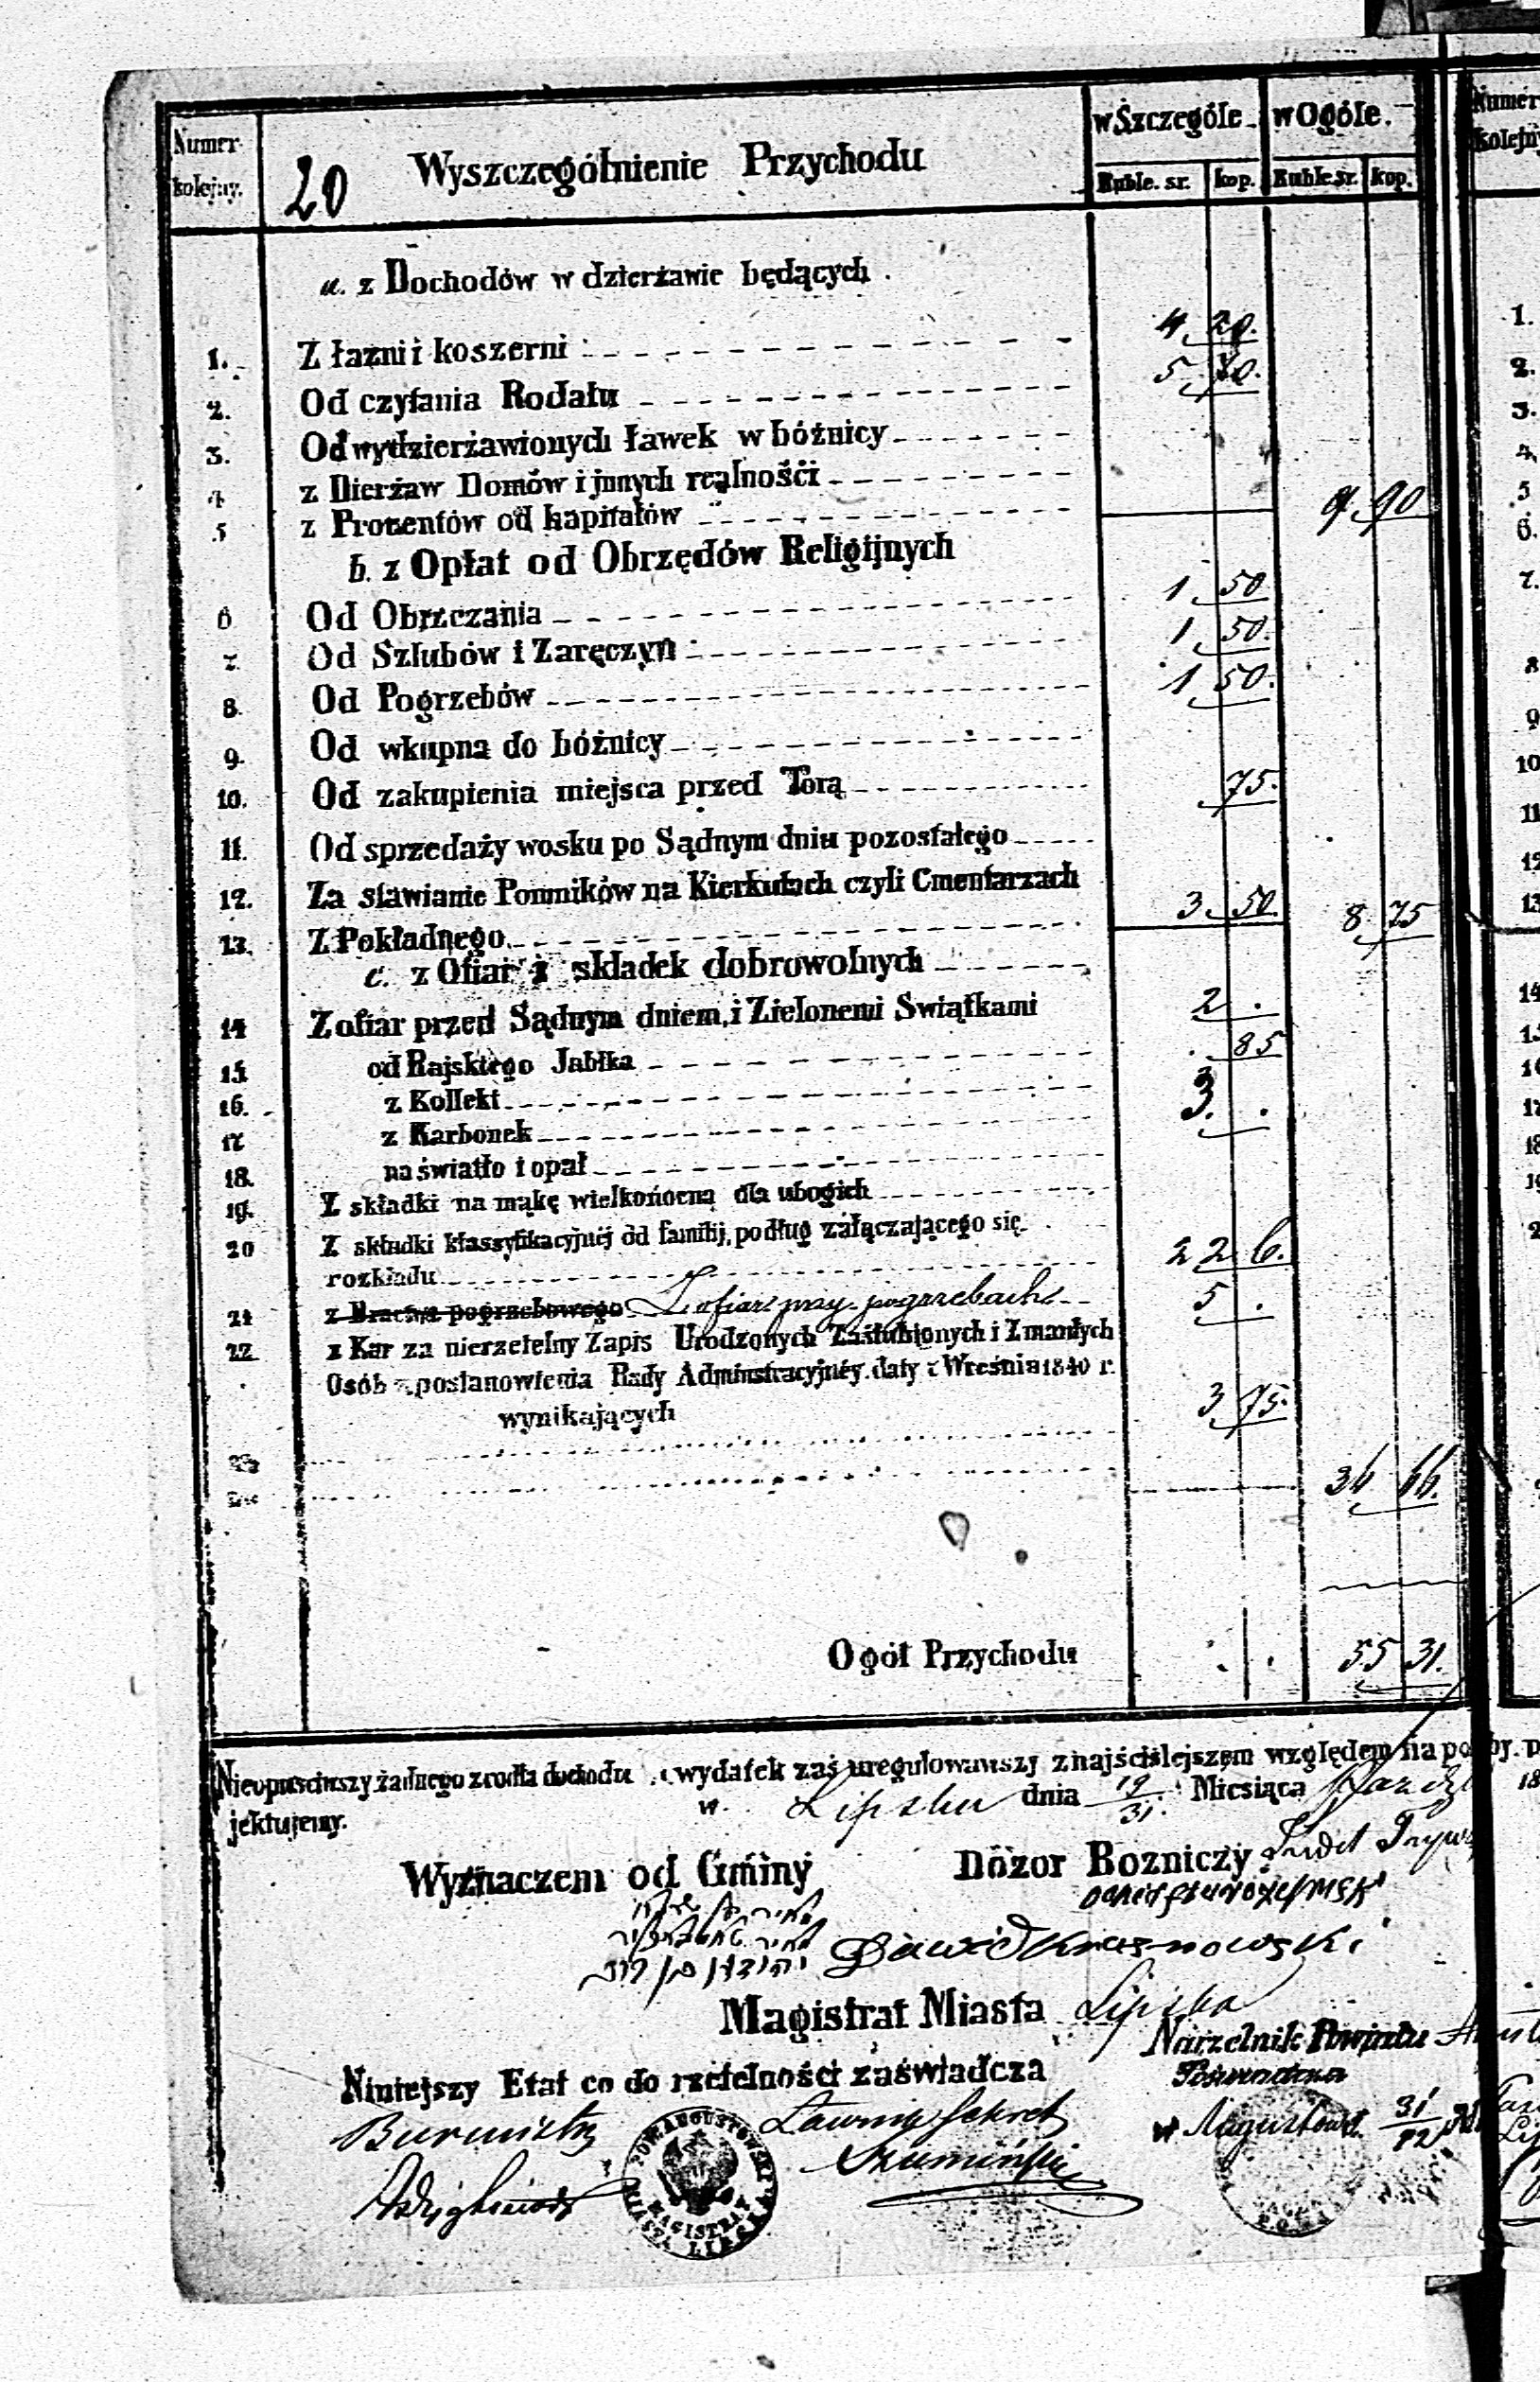 Numer kolejny.
20 Wyszczególnienie Przychodu
w Szczególe. w Ogóle.
Ruble. sr. kop. Ruble sr. kop.
a. z Dochodów w dzierżawie będących.
1. Z łaźni i koszerni 4 20.
2. Od czytania Rodału 5 70.
3. Od wydzierżawionych ławek w bóżnicy
4 z Dierżaw Domów i jnnych reąlnośći
5 z Procentów od kapitałów 9 90
b. z Opłat od Obrzędów Religijnych
6 Od Obrzezania 1 50
7. Od Szlubów i Zaręczyn 1 50.
8. Od Pogrzebów 1 50.
9. Od wkupna do bóżnicy
10. Od zakupienia miejsca przed Torą 75.
11. Od sprzedaży wosku po Sądnym dniu pozostałego
12. Za stawianie Pomników na Kierkutach czyli Cmentarzach
13. Z Pokładnego 3. 50. 8 75
c. z Ofiar i składek dobrowolnych
14 Z ofiar przed Sądnym dniem, i Zielonemi Swiątkami 2 .
15 od Rajskiego Jabłka . 85
16. z Kollekt 3. .
17 z Karbonek
18. na światło i opał
19. Z składki na mąkę wielkonocną dla ubogich
20 Z składki kłassyfikacyjnéj od familij, podług załączającego się
rozkładu 22 6.
21 z Bractwa pogrzebowego Z ofiar przy pogrzebach 5 .
22 z Kar za nierzetelny Zapis Urodzonych Zaślubionych i Zmarłych
Osób z postanowienia Rady Adminstracyjnéy. daty Wreśnia 1840 r.
wynikających 3 75.
36 66.
Ogół Przychodu . . 55 31.
Nieopuściwszy żadnego zrodła dochodu, a wydatek zaś uregulowawszy z najściślejszem względem na
jektujemy.
w. Lipsku dnia 19/31. Miesiąca
Wyznaczem od Gminy Dozor Bozniczy
Dawid Krasnowski
Magistrat Miasta Lipska
Naczelnik Powiatu
Niniejszy Etat co do rzetelności zaświadcza
Burmistrz Ławnik Sekret
w Augustowie 31/12
POW: AUGUSTOWSKI MAGISTRAT MIASTA LIPSKA